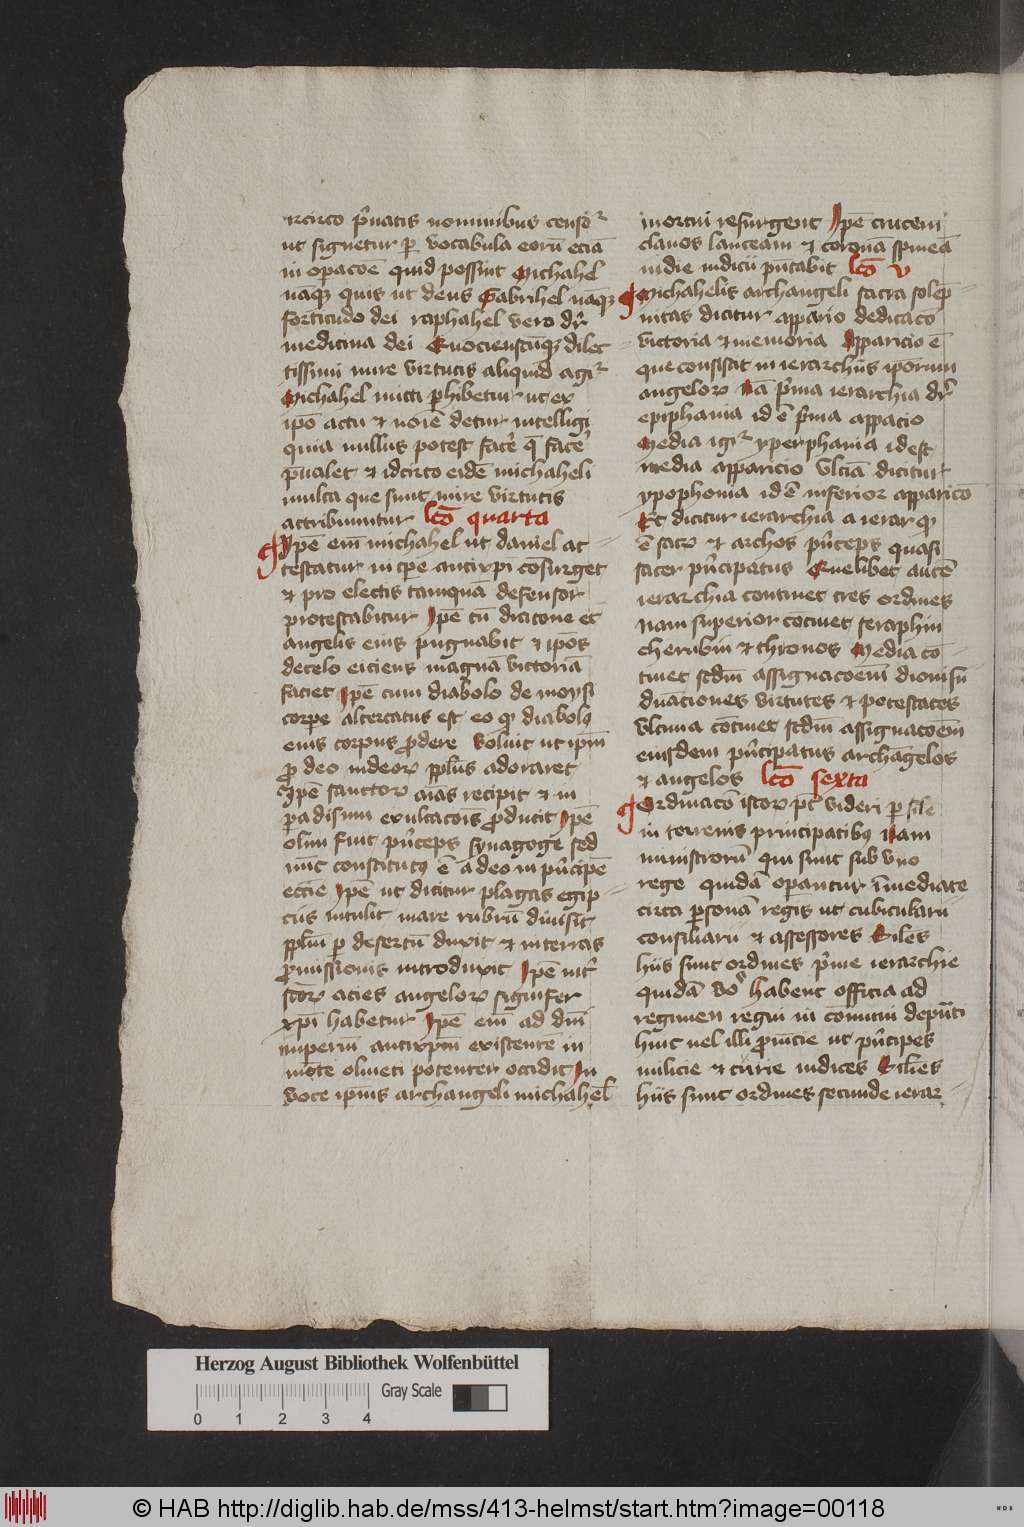 ircirco p̄uatis nominibus censēr
ut signetur p̱ vocabula eorū eciā
in opacōe quid possint Michahel
nāqꝫ quis ut deus Gabrihel nāqꝫ
fortitudo dei raphahel vero dr̄
medicina dei Quociensc̄ūqꝫ dilec
tissimi mire virtutis aliquid agi᷑
Michahel mitti p̱hibetur ut ex
ipō actu ⁊ noīe detur intelligi
quia nullus potest face᷑ q̄ face᷑
p̄ualet ⁊ idcirco eidē michaheli
multa que sunt mire virtutis
attribuuntur lc̄o quarta
Ipē em̄ michahel ut daniel at
testatur in tp̄e antixp̄i cōsurget
⁊ pro electis tamquā defensor
protestabitur Ipē cū dracone et
angelis eius pugnabit ⁊ ipōs
de celo eiciens magnā victoriā
faciet Ipē cum diabolo de moysi
corpe altercatus est eo qꝫ diabolꝯ
eius corpus p̱dere voluit ut ipm̄
ꝓ deo iudeoꝝ pplūs adoraret
Ipē sanctoꝝ aīas recipit ⁊ in
p̱adisum exultacōis ꝓducit Ipē
olim fuit p̄nceps synagoge sed
nūc constitutꝯ ē a deo in p̄ncipē
eccīe Ipē ut dicitur plagas egip
ciis intulit mare rubrū diuisit
pplm̄ p̱ desertū duxit ⁊ in terras
ꝓmissionis introduxit Ipē int᷑
sc̄oꝝ acies angeloꝝ signifer
xp̄i habetur Ipē em̄ ad dn̄i
imperiū antixpm̄ existentē in
mōte oliueti potenter occidit In
voce ipīus archangeli michahel̄
mortui resurgent Ipē crucem
clauos lanceam ⁊ coronā spineā
in die iudicii p̄ntabit lc̄o v
Michahelis archangeli sacra solēp
nitas dicitur apparīo dedicacō
victoria ⁊ memoria Apparicio ē
que consistit in ierarchiis ip̄orum
angeloꝝ Nā p̄ma ierarchia dr̄
epiphania id ē p̄ma appacio
Media igi᷑ yperphania id est
media apparicio Vltīa dicitur
ypophonia id ē inferior apparicō
Et dicitur ierarchia a ierar qꝫ
ē sacꝝ ⁊ archos p̄nceps quasi
sacer p̄ncipatus Quelibet autē
ierarchia continet tres ordines
Nam superior cōtinet seraphin
cherubin ⁊ thronos Media cō
tinet scdm̄ assignacōem̄ dionisii
dn̄aciones virtutes ⁊ potestates
Vltima cōtinet scdm̄ assignacōem̄
eiusdem p̄ncipatus archāgelos
⁊ angelos lc̄o sexta
Ordinacō istoꝝ pt̄ videri p̱ sīle
in terrenis principatibꝯ Nam
ministrorū qui sunt sub vno
rege quidā operantur īmediate
circa p̱sonā regis ut cubicularii
consiliarii ⁊ assessores Silēs
hiis sunt ordines p̄me ierarchie
quidā vº habent officia ad
regimen regni in cōmuni deputi
huic uel illi ꝓuīcie ut p̄ncipes
milicie ⁊ curie iudices Silēs
hiis sunt ordines secunde ierar
Herzog August Bibliothek Wolfenbüttel
Gray Scale
0 1 2 3 4
© HAB http://diglib.hab.de/mss/413-helmst/start.htm?image=00118